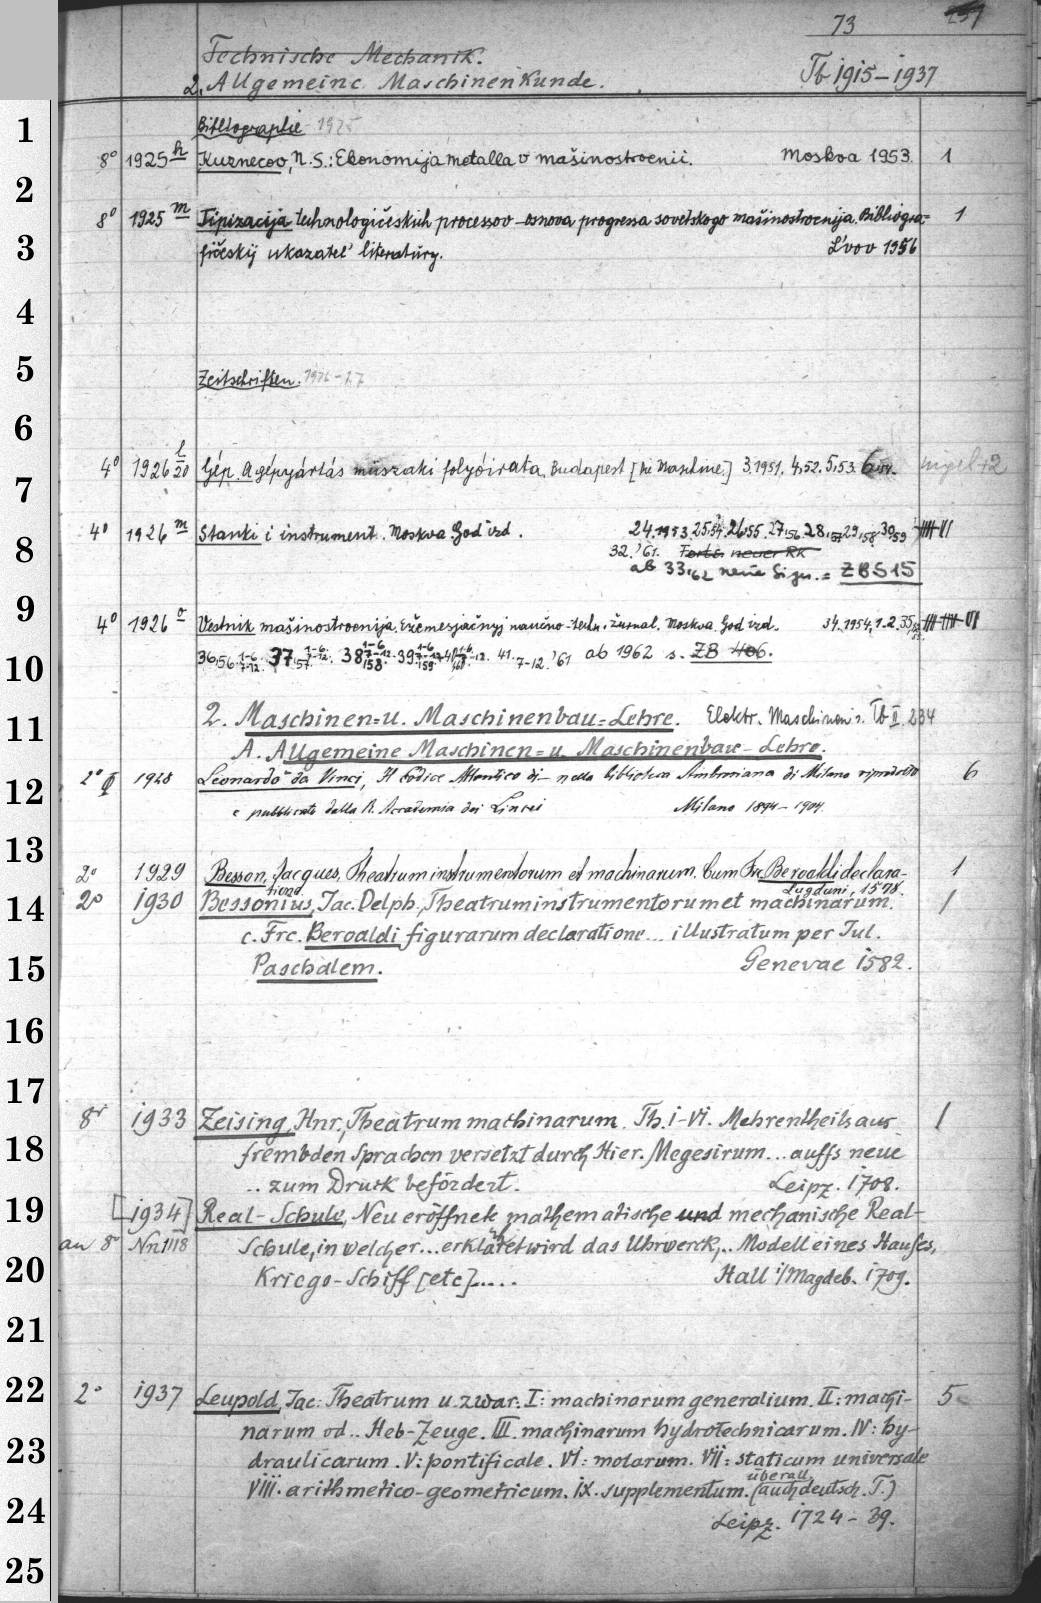 73
Technische Mechanik.
2. Allgemeine Maschinenkunde. Tb 1915-1937
1
Bibliographie 1925
8° 1925 h Kuznecov, N.S.: Ekonomija metalla v mašinostroenii. Moskva 1953. 1
2
8° 1925 m Tipizacija technologičeskich processov - osnova progressa sovetskogo mašinostroenija. Bibliogra- 1
3
fičeskij ukazatel' literatury. L'vov 1956
4
5
Zeitschriften. 1926-27
6
4° 1926 l/20 Gép. A gépgyártás müszaki folyóirata. Budapest [Die Maschine.] 3.1951. 4,52. 5,53.
7
4° 1926 m Stanki i instrument. Moskva. God izd. 24.1953 25,54. 26,55. 27,56. 28,57 29,58. 30,59
8
32.'61. Forts. neuer RK
ab 33,62 neue Sign. = ZBS15
9
4° 1926 o Vestnik mašinostroenija. Ežemesjačnyj naučno-techn. žurnal. Moskva. God izd. 34.1954, 1.2. 35,55
10
36,56. 1-6. 7-12. 37,57. 1-6. 7-12. 38,58. 1-6. 7-12. 39,59. 1-6. 7-12. 41. 7-12.'61 ab 1962 s. ZB 406.
11
2. Maschinen= u. Maschinenbau=Lehre. Elektr. Maschinen s. Tb II. 234
A. Allgemeine Maschinen= u. Maschinenbau-Lehre.
12
2° 1928 Leonardo da Vinci, Il Codice Atlantico di - nella biblioteca Ambrosiana di Milano riprodotto 6
e pubblicato dalla R. Accademia dei Lincei Milano 1894-1904.
13
2° 1929 Besson, Jacques, Theatrum instrumentorum et machinarum. Cum Fr. Beroaldi declara- 1
tione. Lugduni, 1578.
14
2° 1930 Bessonius, Jac. Delph., Theatrum instrumentorum et machinarum. 1
c. Frc. Beroaldi figurarum declaratione... illustratum per Jul.
15
Paschalem. Genevae 1582.
16
17
8° 1933 Zeising, Hnr., Theatrum machinarum. Th. I-VI. Mehrentheils aus 1
18
frembden Sprachen versetzt durch Hier. Megesirum... auffs neue
.. zum Druck befördert. Leipz. 1708.
19
[1934] Real-Schule, Neu eröffnete mathematische und mechanische Real-
an 8° Nn 1118 Schule, in welcher... erkläret wird das Uhrwerck,.. Modell eines Hauses,
20
Kriegs-Schiff [etc]..... Hall i/Magdeb. 1709.
21
22
2° 1937 Leupold, Jac: Theatrum u. zwar: I: machinarum generalium. II: machi- 5
narum od.. Heb-Zeuge. III. machinarum hydrotechnicarum. IV: hy-
23
draulicarum. V: pontificale. VI: molarum. VII: staticum universale
überall
24
VIII. arithmetico-geometricum. IX. supplementum. (auch deutsch. T.)
Leipz. 1724-39.
25